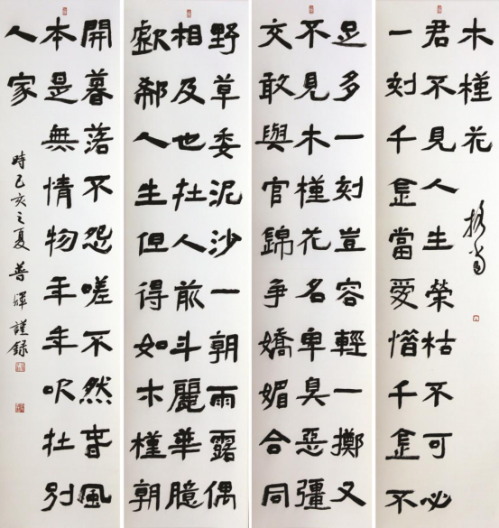 木槿花
君不見人生榮枯不可必
一刻千金當愛惜千金不
足多一刻豈容輕一擲又
不見木槿花名卑臭惡彊
交敢與官錦爭嬌媚合同
野草委泥沙一朝雨露偶
相及也在人前斗麗華臆
歔郗人生但得如木槿朝
開暮落不怨嗟不然春風
本是無情物年年只在別
人家
時己亥之夏 普 謹録